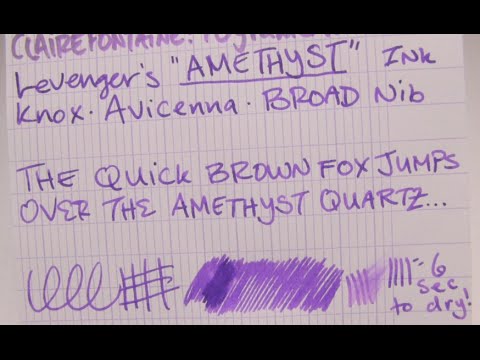 CLAIREFONTAINE.
Levenger's "AMETHYST" Ink
Knox · Avicenna · BROAD Nib
THE QUICK BROWN FOX JUMPS
OVER THE AMETHYST QUARTZ...
6
sec
to dry!